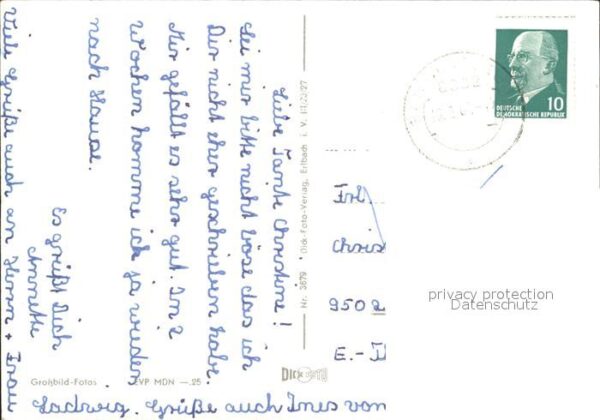 Liebe Tante Christine!
Sei mir bitte nicht böse das ich
Dir nicht eher geschrieben habe.
Mir gefällt es sehr gut. In 2
Wochen komme ich ja wieder
nach Hause.
Es grüßt Dich
Annette
Viele Grüße auch an Herrn + Frau
Ladwig. Grüße auch Ines von
Großbild-Fotos
EVP MDN —.25
Nr. 3679
Dick-Foto-Verlag, Erlbach i. V.
DICK FOTO
DEUTSCHE
DEMOKRATISCHE REPUBLIK
10
Frl.
Chris
950
E.-
privacy protection
Datenschutz